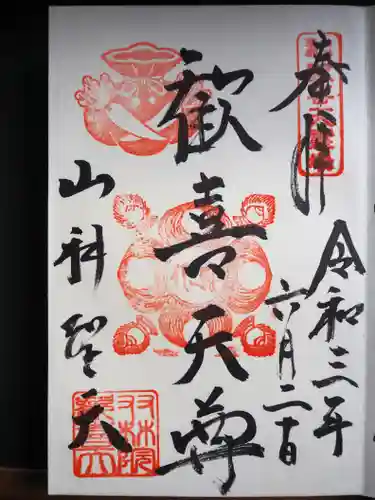 奉拝
令和三年
六月二十日
歓喜天尊
山科聖天
双林院